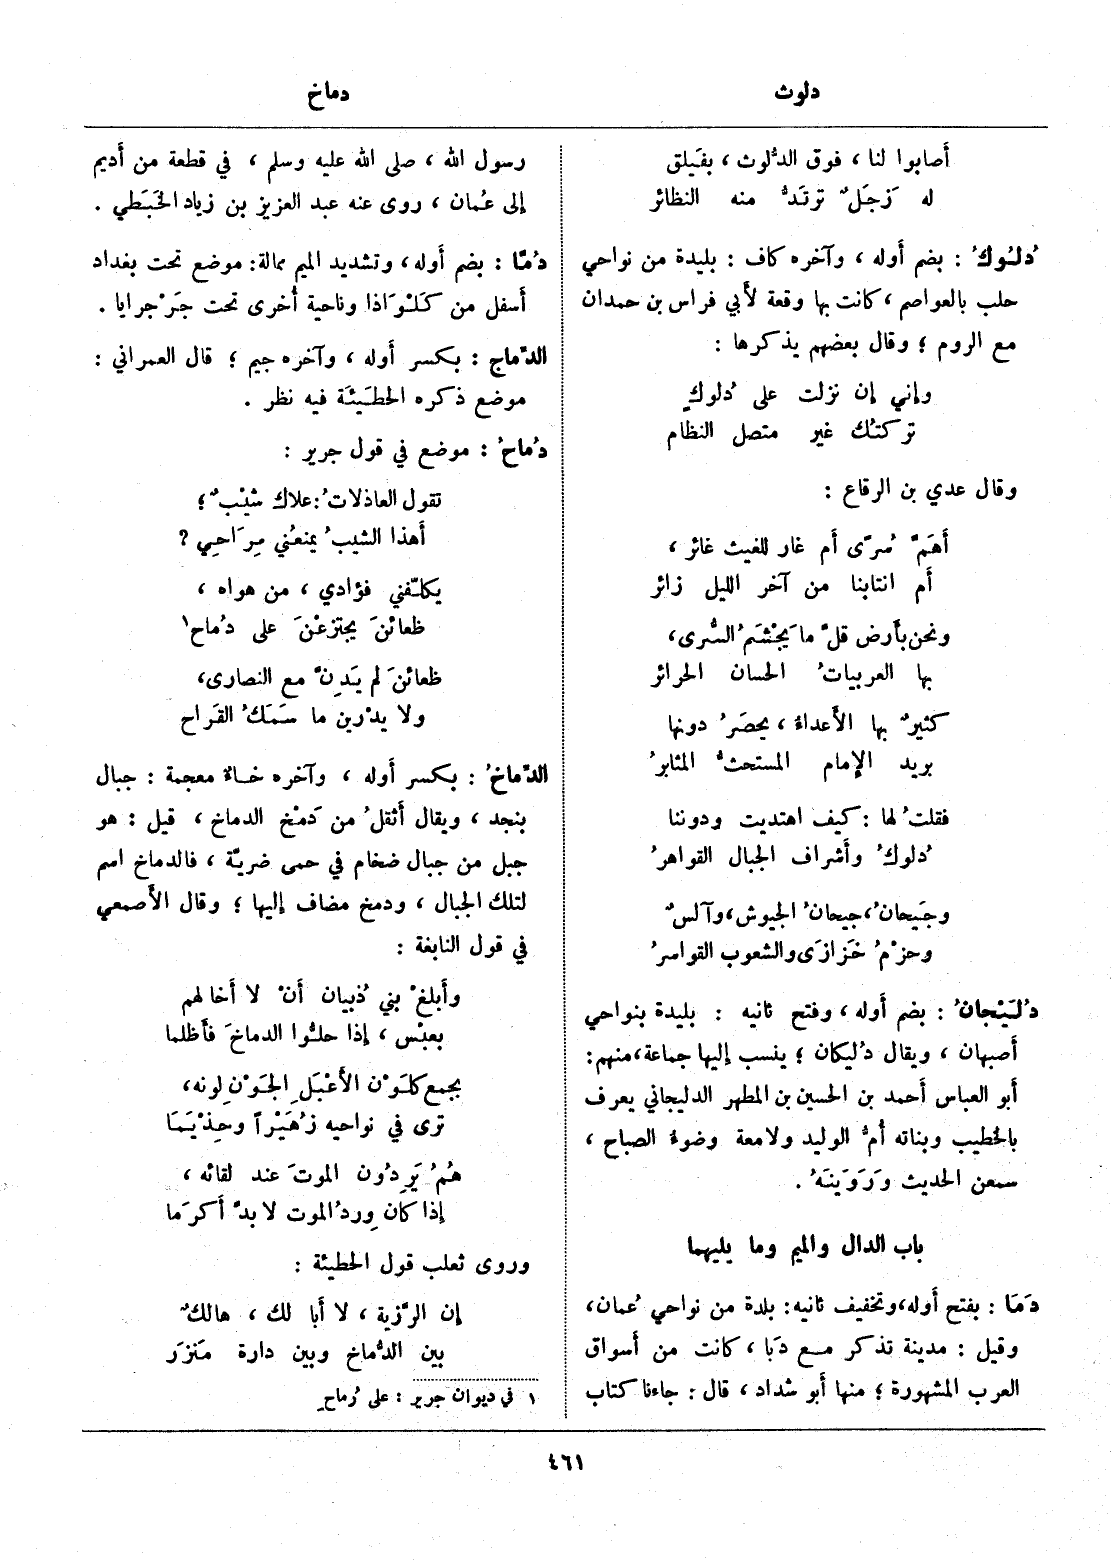 دلوث
دماخ
أصابوا لنا ، فوق الدُّلوث ، بفَيلق
له زَجَلٌ تَرتَدُّ منه النظائر
دُلُوكُ : بضم أوله ، وآخره كاف : بليدة من نواحي
حلب بالعواصم ، كانت بها وقعة لأبي فراس بن حمدان
مع الروم ؛ وقال بعضهم يذكرها :
وإني إن نزلت على دُلوكٍ
تركتُك غير متصل النظام
وقال عدي بن الرقاع :
أهَمٌّ سُرًى أم غار للغيث غائر ،
أم انتابنا من آخر الليل زائر
ونحن بأرض قلّ ما يَجْشَمُ السُّرى،
بها العربيات الحسان الحرائر
كثيرٌ بها الأعداءُ ، يحصَرُ دونها
بريد الإمام المستحثُّ المثابرُ
فقلتُ لها : كيف اهتديت ودوننا
دُلوكُ وأشراف الجبال القواهرُ
وجَيحانُ، جيحانُ الجيوش، وآلسٌ
وحزْمُ خَزازَى والشعوب القواسرُ
دُلَيْجانُ : بضم أوله ، وفتح ثانيه : بليدة بنواحي
أصبهان ، ويقال دُليكان ؛ ينسب إليها جماعة، منهم:
أبو العباس أحمد بن الحسين بن المطهر الدليجاني يعرف
بالخطيب وبناته أُمُّ الوليد ولامعة وضوءُ الصباح ،
سمعن الحديث ورَوَيْنَهُ .
باب الدال والميم وما يليهما
دَمَا : بفتح أوله، وتخفيف ثانيه: بلدة من نواحي عُمان،
وقيل : مدينة تذكر مع دَبا ، كانت من أسواق
العرب المشهورة ؛ منها أبو شداد ، قال : جاءنا كتاب
رسول الله ، صلى الله عليه وسلم ، في قطعة من أديم
إلى عُمان ، روى عنه عبد العزيز بن زياد الحَبَطي .
دُمّا : بضم أوله، وتشديد الميم ممالة: موضع تحت بغداد
أسفل من كَلْوَاذا وناحية أُخرى تحت جَرْجرايا .
الدِّماج : بكسر أوله ، وآخره جيم ؛ قال العمراني :
موضع ذكره الحطَيئَة فيه نظر .
دُماحُ : موضع في قول جرير :
تقول العاذلاتُ : علاك شَيْبٌ ؛
أهذا الشيبُ يمنعُني مِرَاحِي ?
يكلّفني فؤادي ، من هواه ،
ظعائنَ يجتزعْنَ على دُماح١
ظعائنَ لم يَدِنَّ مع النصارى،
ولا يدْرين ما سَمَكُ القَراح
الدِّماخُ : بكسر أوله ، وآخره خاءٌ معجمة : جبال
بنجد ، ويقال أثقلُ من دَمْخ الدماخ ، قيل : هو
جبل من جبال ضخام في حمى ضريّة ، فالدماخ اسم
لتلك الجبال ، ودمخ مضاف إليها ؛ وقال الأصمعي
في قول النابغة :
وأبلغْ بني ذُبيان أنْ لا أخا لهم
بعبْس ، إذا حلُّوا الدماخَ فأظلما
بجمع كلَوْن الأعْبَلِ الجَوْن لونه،
ترى في نواحيه زُهَيْراً وحِذْيَمَا
هُمُ يَرِدُون الموتَ عند لقائه ،
إذا كان وِردُ الموت لا بدَّ أكرَما
وروى ثعلب قول الحطيئة :
إن الرّزية ، لا أبا لك ، هالكٌ
بين الدُّماخ وبين دارة مَنزَر
١ في ديوان جرير : على رُماحِ
٤٦١